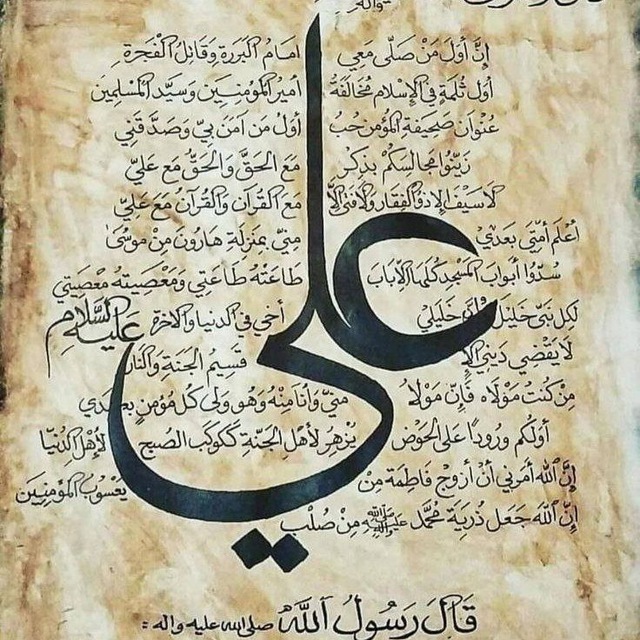 واله
إن أول من صلى معي امام البررة وقاتل الفجرة
أول ثلمة في الإسلام مخالفة أمير المؤمنين وسيد المسلمين
عنوان صحيفة المؤمن حب أول من امن بي وصدقني
زينوا مجالسكم بذكر مع الحق والحق مع علي
لا سيف إلا ذو الفقار ولا فتى إلا مع القرآن والقرآن مع علي
أعلم أمتي بعدي مني بمنزلة هارون من موسى
سدوا أبواب المسجد كلها إلا باب طاعته طاعتي ومعصيته معصيتي
لكل نبي خليل وإن خليلي أخي في الدنيا والاخرة
علي عليه السلام
لا يقضي ديني إلا قسيم الجنة والنار
من كنت مولاه فإن مولاه مني وأنا منه وهو ولي كل مؤمن بعدي
أولكم ورودا على الحوض يزهر لأهل الجنة ككوكب الصبح لأهل الدنيا
إن الله أمرني أن أزوج فاطمة من يعسوب المؤمنين
إن الله جعل ذرية محمد ﷺ من صلب
قال رسول الله صلى الله عليه واله :